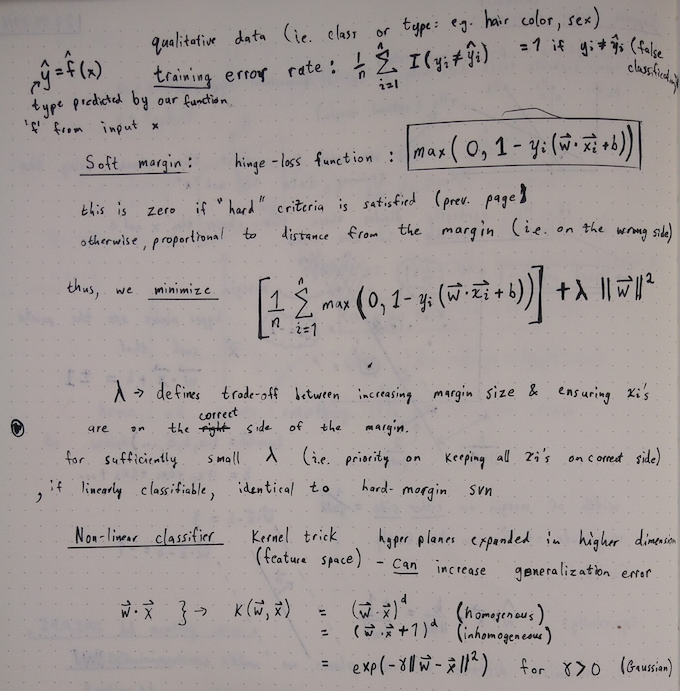 qualitative data (ie. class or type: e.g. hair color, sex)
ŷ = f̂(x) training error rate: 1/n Σ_{i=1}^{n} I(yᵢ ≠ ŷᵢ) = 1 if yᵢ ≠ ŷᵢ (false classification)
type predicted by our function
'f' from input x
Soft margin: hinge-loss function: max(0, 1 - yᵢ(w⃗·x⃗ᵢ+b))
this is zero if "hard" criteria is satisfied (prev. page)
otherwise, proportional to distance from the margin (i.e. on the wrong side)
thus, we minimize [1/n Σ_{i=1}^{n} max(0, 1-yᵢ(w⃗·x⃗ᵢ+b))] + λ ||w⃗||²
λ → defines trade-off between increasing margin size & ensuring xᵢ's
are on the correct side of the margin.
for sufficiently small λ (i.e. priority on keeping all xᵢ's on correct side)
, if linearly classifiable, identical to hard-margin SVM
Non-linear classifier Kernel trick hyper planes expanded in higher dimension
(feature space) - can increase generalization error
w⃗·x⃗ } → K(w⃗,x⃗) = (w⃗·x⃗)^d (homogenous)
= (w⃗·x⃗+1)^d (inhomogeneous)
= exp(-γ||w⃗-x⃗||²) for γ>0 (Gaussian)